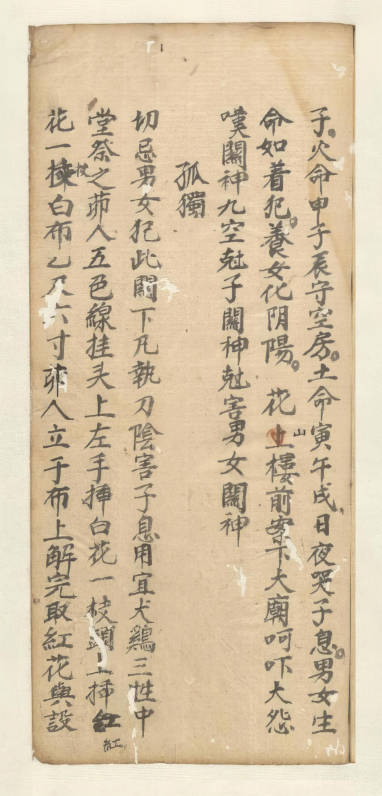 子火命申子辰守空房土命寅午戌日夜哭子息男女生
命如着犯養女化阴陽花山樓前案下大廟呵吓大怨
嘆関神九空尅子関神尅害男女関神
孤獨
切忌男女犯此関下凡執刀陰害子息用宜犬鷄三牲中
堂祭之茆人五色線挂头上左手揷白花一枝頭上揷紅
花一枝白布乙尺六寸茆人立于布上解完取紅花與設